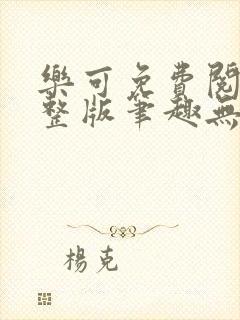 樂可免費閱
整版筆趣無
楊克